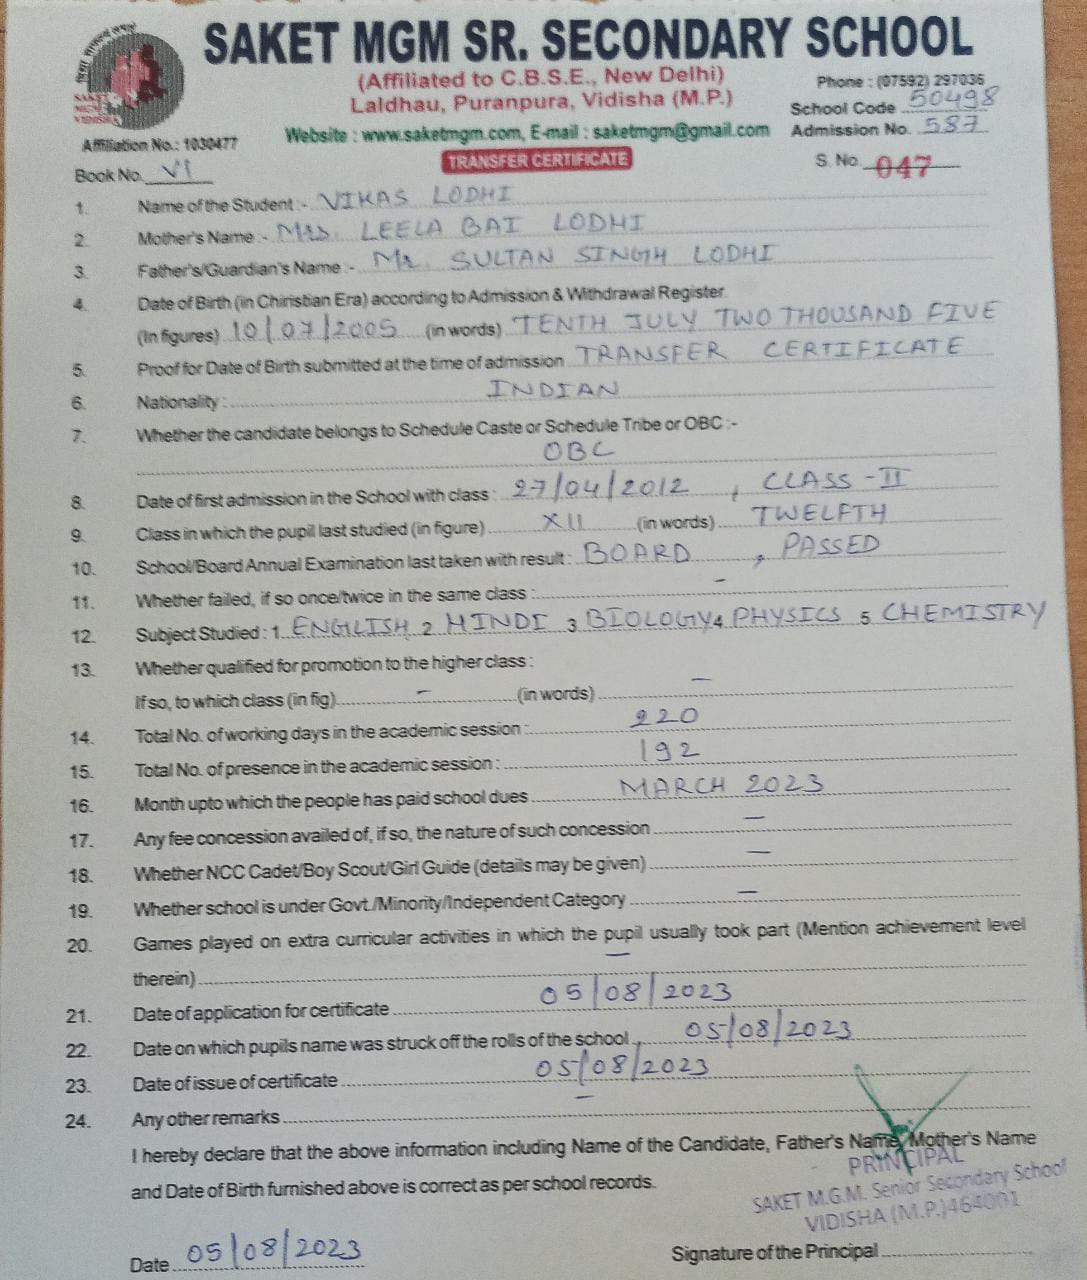 SAKET MGM SR. SECONDARY SCHOOL
(Affiliated to C.B.S.E., New Delhi)
Laldhau, Puranpura, Vidisha (M.P.)
Phone : (07592) 297036
School Code 50498
Website : www.saketmgm.com, E-mail : saketmgm@gmail.com
Admission No. 587
SAKET MGM VIDISHA
Affiliation No.: 1030477
TRANSFER CERTIFICATE
Book No. VI
S. No. 047
1. Name of the Student :- VIKAS LODHI
2. Mother's Name :- Mrs. LEELA BAI LODHI
3. Father's/Guardian's Name :- Mr. SULTAN SINGH LODHI
4. Date of Birth (in Chiristian Era) according to Admission & Withdrawal Register.
(In figures) 10/07/2005 (in words) TENTH JULY TWO THOUSAND FIVE
5. Proof for Date of Birth submitted at the time of admission TRANSFER CERTIFICATE
6. Nationality : INDIAN
7. Whether the candidate belongs to Schedule Caste or Schedule Tribe or OBC :-
OBC
8. Date of first admission in the School with class : 27/04/2012 , CLASS - II
9. Class in which the pupil last studied (in figure) XII (in words) TWELFTH
10. School/Board Annual Examination last taken with result : BOARD , PASSED
11. Whether failed, if so once/twice in the same class : -
12. Subject Studied : 1 ENGLISH 2 HINDI 3 BIOLOGY 4 PHYSICS 5 CHEMISTRY
13. Whether qualified for promotion to the higher class :
If so, to which class (in fig) - (in words) -
14. Total No. of working days in the academic session : 220
15. Total No. of presence in the academic session : 192
16. Month upto which the people has paid school dues MARCH 2023
17. Any fee concession availed of, if so, the nature of such concession -
18. Whether NCC Cadet/Boy Scout/Girl Guide (details may be given) -
19. Whether school is under Govt./Minority/Independent Category -
20. Games played on extra curricular activities in which the pupil usually took part (Mention achievement level
therein) -
21. Date of application for certificate 05/08/2023
22. Date on which pupils name was struck off the rolls of the school 05/08/2023
23. Date of issue of certificate 05/08/2023
24. Any other remarks -
I hereby declare that the above information including Name of the Candidate, Father's Name, Mother's Name
and Date of Birth furnished above is correct as per school records.
PRINCIPAL
SAKET M.G.M. Senior Secondary School
VIDISHA (M.P.) 464001
Date 05/08/2023
Signature of the Principal